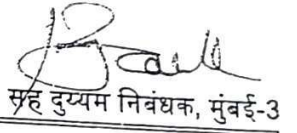 सह दुय्यम निबंधक, मुंबई-3